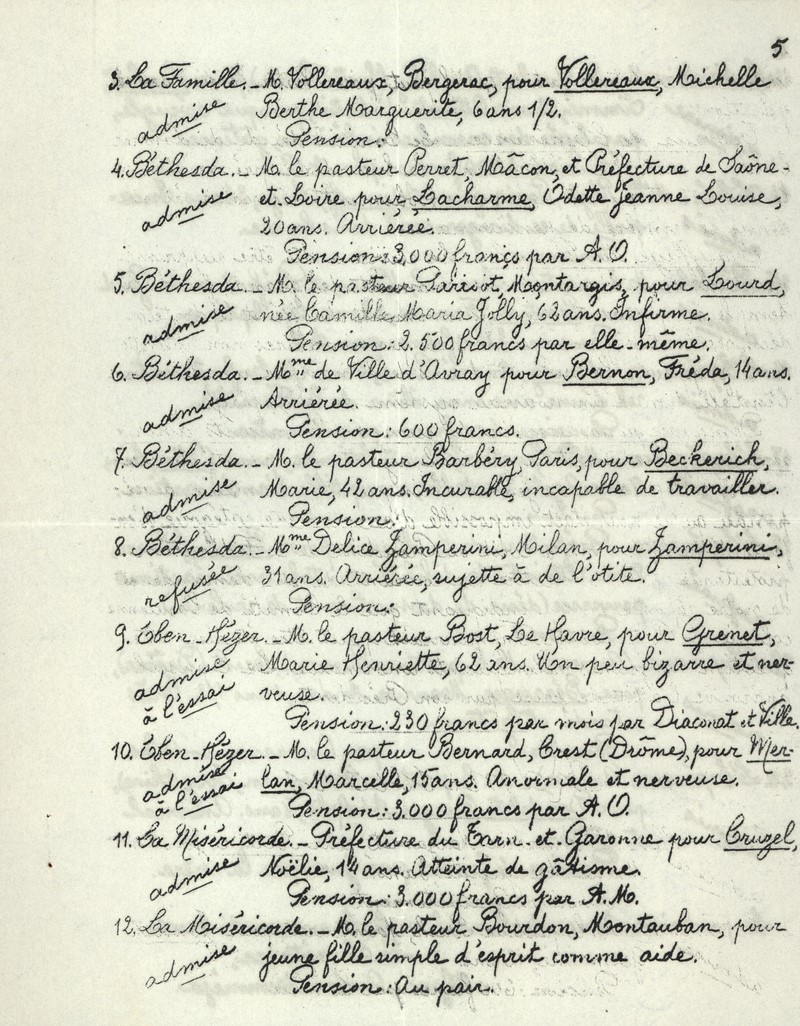 5
3. La Famille. - M. Vollereaux, Bergerac, pour Vollereaux, Michelle
admise Berthe Marguerite, 6 ans 1/2.
Pension:
4. Béthesda. - M. le pasteur Perret, Mâcon, et Préfecture de Saône-
admise et-Loire pour Lacharme, Odette Jeanne Louise,
20 ans. Arriérée.
Pension: 3.000 francs par A.O.
5. Béthesda. - M. le pasteur Parisot, Montargis, pour Lourd,
admise née Camille Maria Jolly, 62 ans. Infirme.
Pension: 2.500 francs par elle-même.
6. Béthesda. - Mme de Ville d'Avray pour Bernon, Fréda, 14 ans.
admise Arriérée.
Pension: 600 francs.
7. Béthesda. - M. le pasteur Barbéry, Paris, pour Beckerich,
admise Marie, 42 ans. Incurable, incapable de travailler.
Pension:
8. Béthesda. - Mme Delice Zamperini, Milan, pour Zamperini,
refusée 31 ans. Arriérée, sujette à de l'otite.
Pension:
9. Eben-Hézer. - M. le pasteur Bost, Le Havre, pour Grenet,
admise Marie Henriette, 62 ans. Un peu bizarre et ner-
à l'essai veuse.
Pension: 230 francs par mois par Diaconat et Ville.
10. Eben-Hézer. - M. le pasteur Bernard, Crest (Drôme), pour Mer-
admise lan, Marcelle, 15 ans. Anormale et nerveuse.
à l'essai Pension: 3.000 francs par A.O.
11. La Miséricorde. - Préfecture du Tarn-et-Garonne pour Cruzel,
admise Noëlie, 14 ans. Atteinte de gâtisme.
Pension: 3.000 francs par A.M.
12. La Miséricorde. - M. le pasteur Bourdon, Montauban, pour
admise jeune fille simple d'esprit comme aide.
Pension: Au pair.